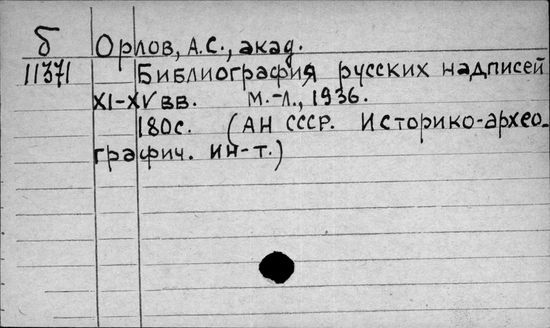 б
Орлов, А.С., акад.
11371
Библиография русских надписей
XI-XV вв. М.-Л., 1936.
180с. (АН СССР. Историко-архео-
графич. ин-т.)